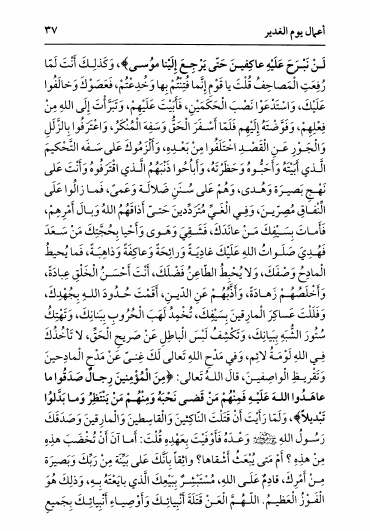 أعمال يوم الغدير ٣٧
لَنْ نَبْرَحَ عَلَيْهِ عاكِفينَ حَتّى يَرْجِعَ إِلَيْنا مُوسى﴾، وَكَذلِكَ أَنْتَ لَمّا
رُفِعَتِ الْمَصاحِفُ قُلْتَ يا قَوْمِ إِنَّما فُتِنْتُمْ بِها وَخُدِعْتُمْ، فَعَصَوْكَ وَخالَفُوا
عَلَيْكَ، وَاسْتَدْعَوْا نَصْبَ الْحَكَمَيْنِ، فَأَبَيْتَ عَلَيْهِمْ، وَتَبَرَّأْتَ إِلَى اللهِ مِنْ
فِعْلِهِمْ، وَفَوَّضْتَهُ إِلَيْهِمْ فَلَمّا أَسْفَرَ الْحَقُّ وَسَفِهَ الْمُنْكَرُ، وَاعْتَرَفُوا بِالزَّلَلِ
وَالْجَوْرِ عَنِ الْقَصْدِ اخْتَلَفُوا مِنْ بَعْدِهِ، وَأَلْزَمُوكَ عَلى سَفَهِ التَّحْكيمَ
الَّذي أَبَيْتَهُ وَأَحَبُّوهُ وَحَظَرْتَهُ، وَأَباحُوا ذَنْبَهُمُ الَّذي اقْتَرَفُوهُ وَأَنْتَ عَلى
نَهْجِ بَصيرَةٍ وَهُدى، وَهُمْ عَلى سُنَنِ ضَلالَةٍ وَعَمىً، فَما زالُوا عَلَى
النِّفاقِ مُصِرّينَ، وَفِي الْغَيِّ مُتَرَدِّدينَ حَتّى أَذاقَهُمُ اللهُ وَبالَ أَمْرِهِمْ،
فَأَماتَ بِسَيْفِكَ مَنْ عانَدَكَ، فَشَقِيَ وَهَوى وَأَحْيا بِحُجَّتِكَ مَنْ سَعَدَ
فَهُدِيَ صَلَواتُ اللهِ عَلَيْكَ غادِيَةً وَرائِحَةً وَعاكِفَةً وَذاهِبَةً، فَما يُحيطُ
الْمادِحُ وَصْفَكَ، وَلا يُحْبِطُ الطّاعِنُ فَضْلَكَ، أَنْتَ أَحْسَنُ الْخَلْقِ عِبادَةً،
وَأَخْلَصُهُمْ زَهادَةً، وَأَذَبُّهُمْ عَنِ الدّينِ، أَقَمْتَ حُدُودَ اللهِ بِجُهْدِكَ،
وَفَلَلْتَ عَساكِرَ الْمارِقينَ بِسَيْفِكَ، تُخْمِدُ لَهَبَ الْحُرُوبِ بِبَنانِكَ، وَتَهْتِكُ
سُتُورَ الشُّبَهِ بِبَيانِكَ، وَتَكْشِفُ لَبْسَ الْباطِلِ عَنْ صَريحِ الْحَقِّ، لا تَأْخُذُكَ
فِي اللهِ لَوْمَةُ لائِمٍ، وَفي مَدْحِ اللهِ تَعالى لَكَ غِنىً عَنْ مَدْحِ الْمادِحينَ
وَتَقْريظِ الْواصِفينَ، قالَ اللهُ تَعالى: ﴿مِنَ الْمُؤْمِنينَ رِجالٌ صَدَقُوا ما
عاهَدُوا اللهَ عَلَيْهِ فَمِنْهُمْ مَنْ قَضى نَحْبَهُ وَمِنْهُمْ مَنْ يَنْتَظِرُ وَما بَدَّلُوا
تَبْديلاً﴾، وَلَمّا رَأَيْتَ أَنْ قَتَلْتَ النّاكِثينَ وَالْقاسِطينَ وَالْمارِقينَ وَصَدَقَكَ
رَسُولُ اللهِ ﷺ وَعْدَهُ فَأَوْفَيْتَ بِعَهْدِهِ قُلْتَ: أَما آنَ أَنْ تُخْضَبَ هذِهِ
مِنْ هذِهِ؟ أَمْ مَتى يُبْعَثُ أَشْقاها؟ واثِقاً بِأَنَّكَ عَلى بَيِّنَةٍ مِنْ رَبِّكَ وَبَصيرَةٍ
مِنْ أَمْرِكَ، قادِمٌ عَلَى اللهِ، مُسْتَبْشِرٌ بِبَيْعِكَ الَّذي بايَعْتَهُ بِهِ، وَذلِكَ هُوَ
الْفَوْزُ الْعَظيمُ. اللَّهُمَّ الْعَنْ قَتَلَةَ أَنْبِيائِكَ وَأَوْصِياءِ أَنْبِيائِكَ بِجَميعِ